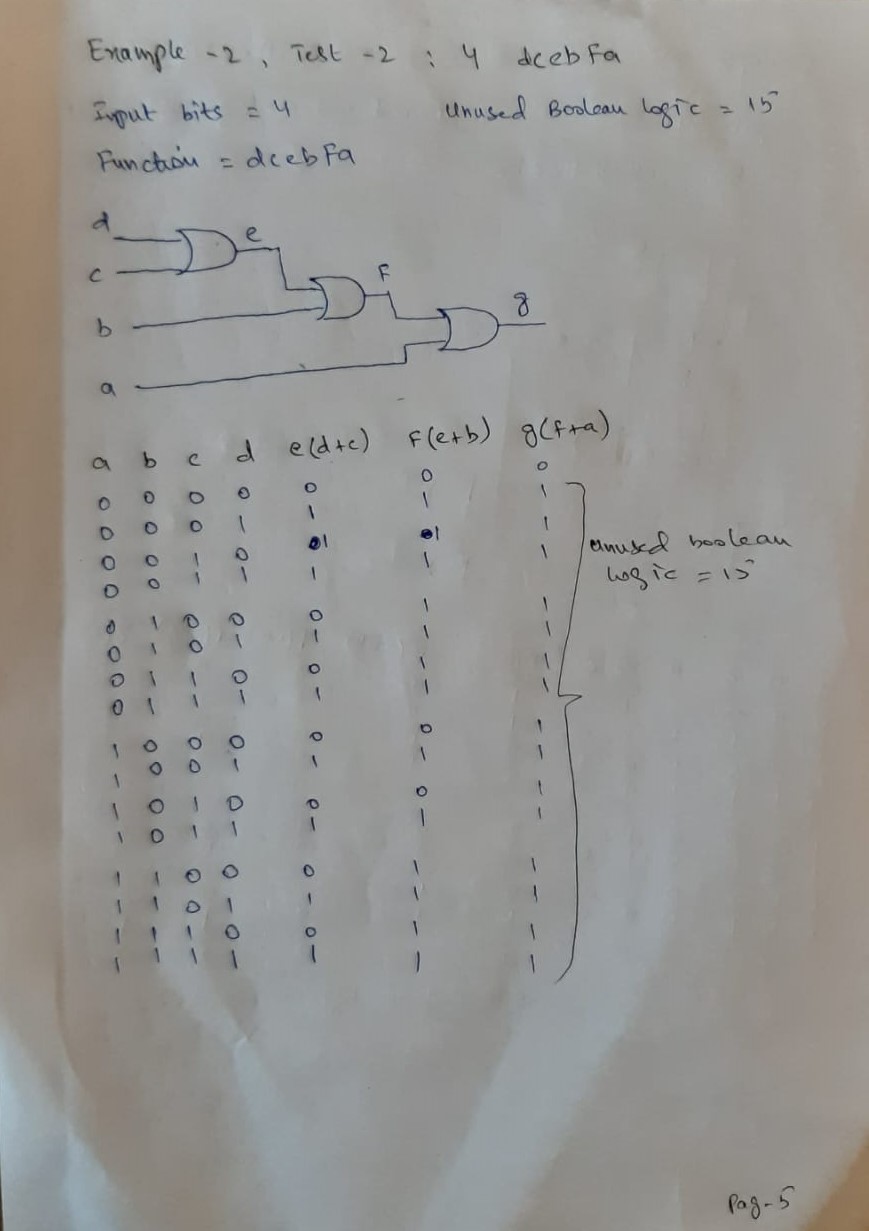 Example -2, Test -2 : 4 dcebFa
Input bits = 4 Unused Boolean logic = 15
Function = dcebFa
d
e
c
F
g
b
a
a b c d e(d+c) F(e+b) g(f+a)
0 0 0 0 0 0 0
0 0 0 1 1 1 1
0 0 1 0 1 1 1
0 0 1 1 1 1 1
0 1 0 0 0 1 1
0 1 0 1 1 1 1
0 1 1 0 0 1 1
0 1 1 1 1 1 1
1 0 0 0 0 0 1
1 0 0 1 1 1 1
1 0 1 0 0 0 1
1 0 1 1 1 1 1
1 1 0 0 0 1 1
1 1 0 1 1 1 1
1 1 1 0 0 1 1
1 1 1 1 1 1 1
unused boolean
logic = 15
Pag-5